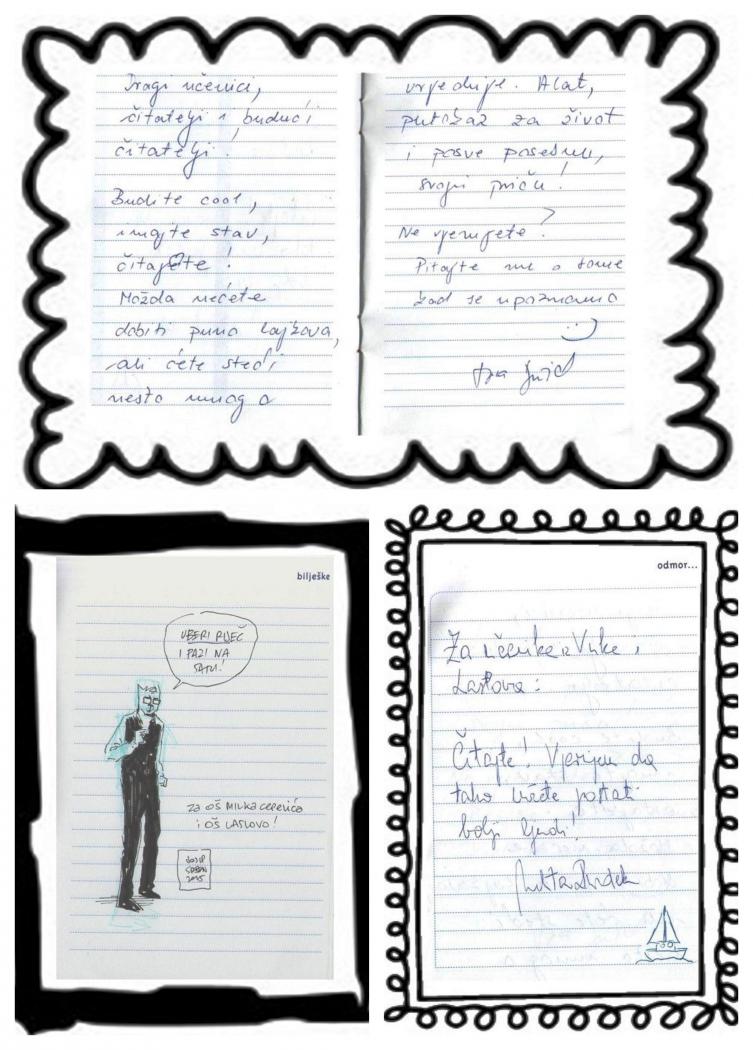 Dragi učenici,
čitatelji i budući
čitatelji!
Budite cool,
imajte stav,
čitajte!
Možda nećete
dobiti puno lajkova,
ali ćete steći
nešto mnogo
vrjednije. Alat,
putokaz za život
i posve posebnu,
svoju priču!
Ne vjerujete?
Pitajte me o tome
kad se upoznamo
bilješke
UBERI RIJEČ
I PAZI NA
ZA OŠ MILKA CEPELIĆA
I OŠ LASLOVO!
JOSIP
2015
odmor...
Za učenike Vuke i
Laslova:
Čitajte! Vjerujem da
tako ćete postati
bolji ljudi!